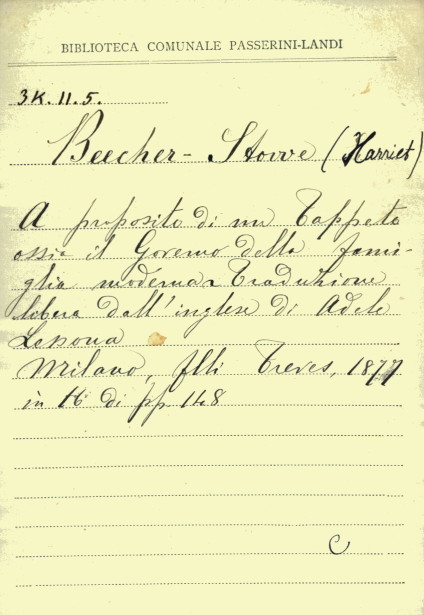 BIBLIOTECA COMUNALE PASSERINI-LANDI
3K.11.5.
Beecher-Stowe (Harriet)
A proposito di un Tappeto
ossia il Governo della fami-
glia moderna Traduzione
libera dall'inglese di Adele
Lessona
Milano, flli Treves, 1877
in 16° di pp 148
C